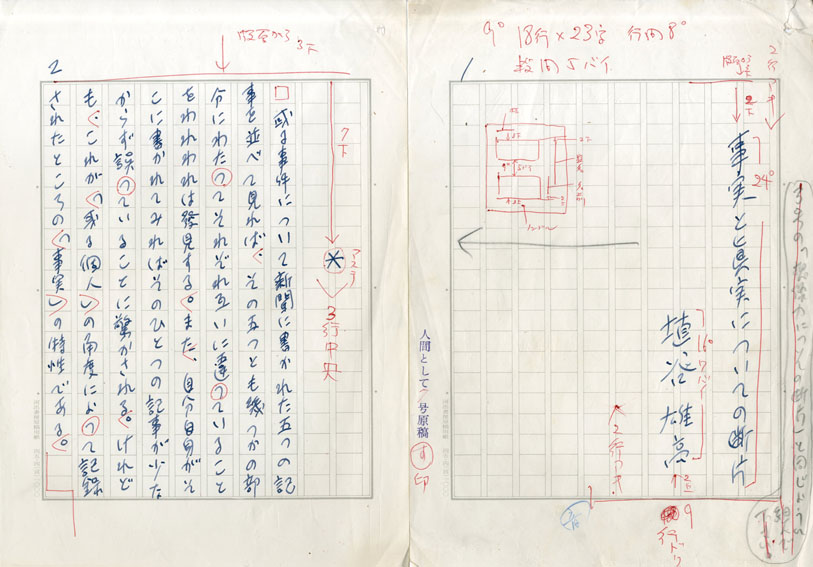 9° 18行×23字 行間8°
段間5バイ
1.
2行ドキ
2下
24°
事実と真実についての断片
埴谷雄高
16°
2行アキ
9行ドリ
人間として 号原稿
す
印
2
3下
7下
アステ
*
3行中央
或る事件について新聞に書かれた五つの記
事を並べて見れば、その五つとも幾つかの部
分にわたってそれぞれ互いに違っていること
をわれわれは発見する。また、自分自身がそ
こに書かれてみればそのひとつの記事が少な
からず誤っていることに驚かされる。けれど
も、これが〈或る個人〉の角度によって記録
されたところの〈事実〉の特性である。